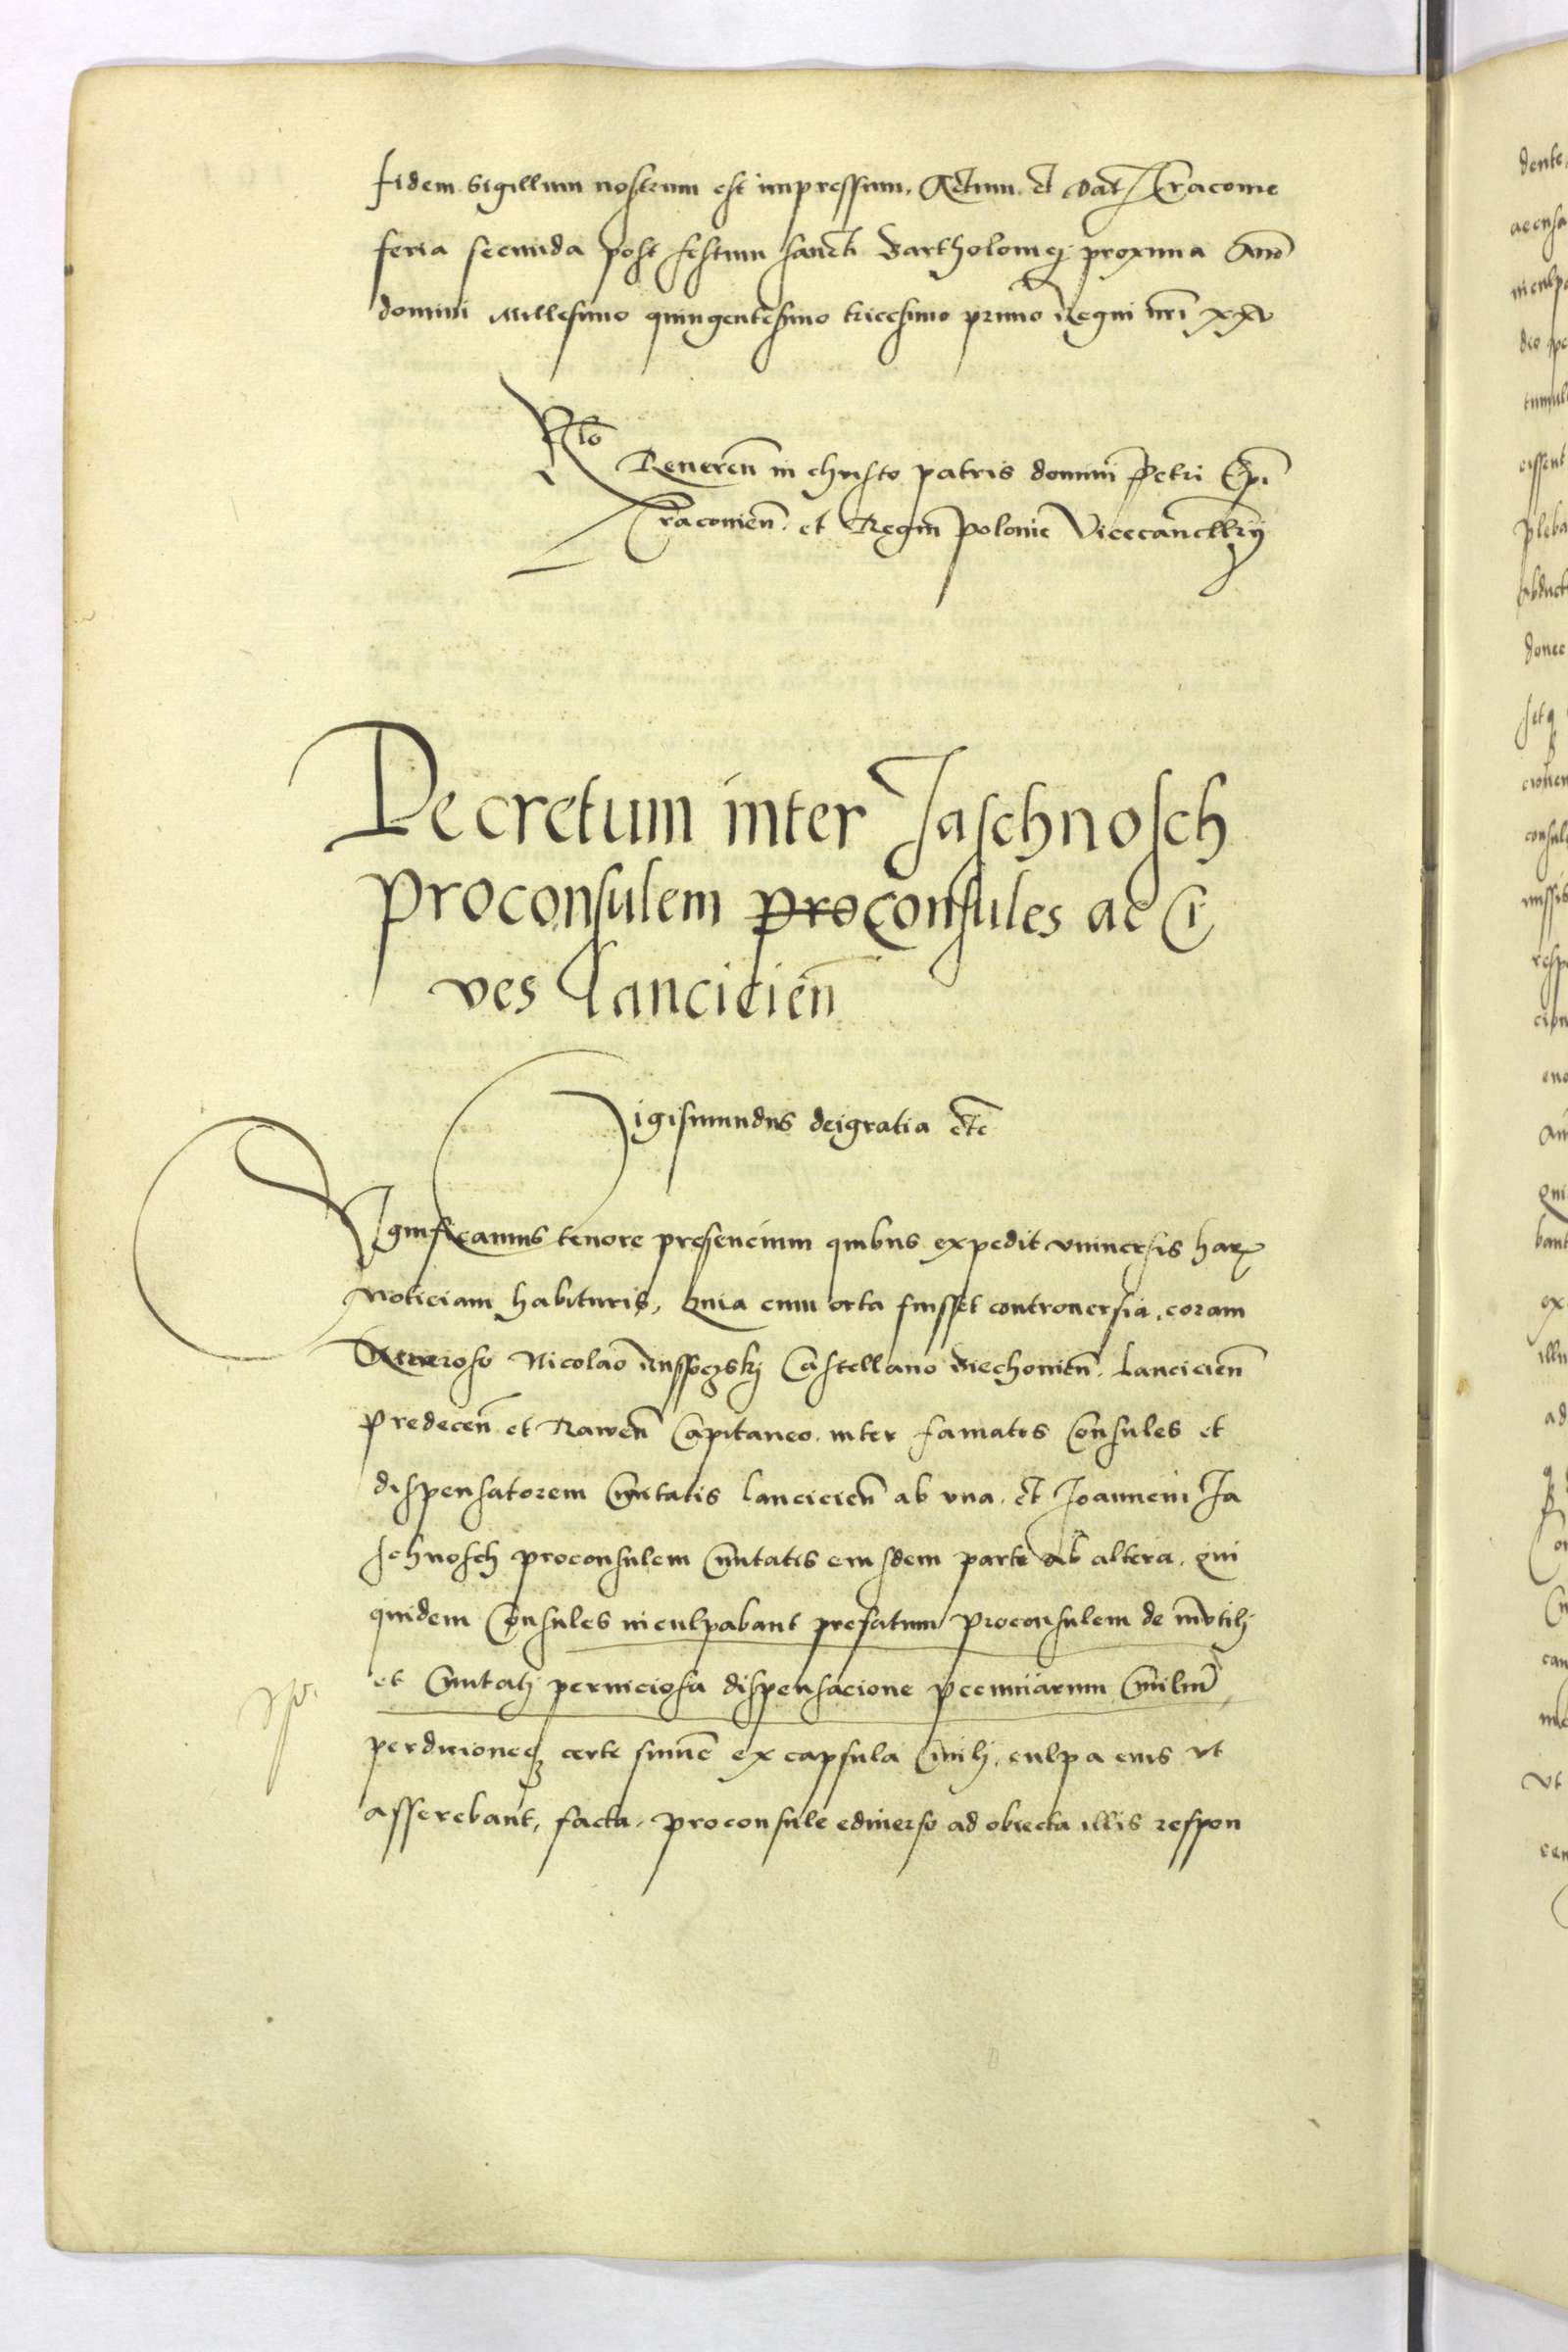 fidem Sigillum nostrum est impressum. Actum et Dat Cracovie
feria secunda post festum sancti Bartholomej proxima Anno
domini Millesimo quingentesimo tricesimo primo Regni nri XXV
Rlo
Reveren in christo patris domini Petri Epi
Cracovien. et Regni polonie Vicecancellrij
Decretum inter Jaschnosch
proconsulem proconsules ac Ci
ves Lancicien
Sigismundus dei gratia etc
Significamus tenore presencium quibus expedit vniversis harum
Noticiam habituris, Quia cum orta fuisset controversia, coram
Generoso Nicolao Russoczskj Castellano Biechovien. Lancicien
Predecen et Rawen Capitaneo. inter famatos Consules et
dispensatorem Civitatis Lancicien ab vna. et Joannem Ja
schnosch proconsulem Civitatis eiusdem parte ab altera. qui
quidem Consules inculpabant prefatum proconsulem de invtilj
et Civitatj perniciosa dispensacione pecuniarum Civiliu
perdicioneque certe summe ex capsula Civilj. culpa eius vt
asserebant, facta. proconsule ediverso ad obiecta illis respon